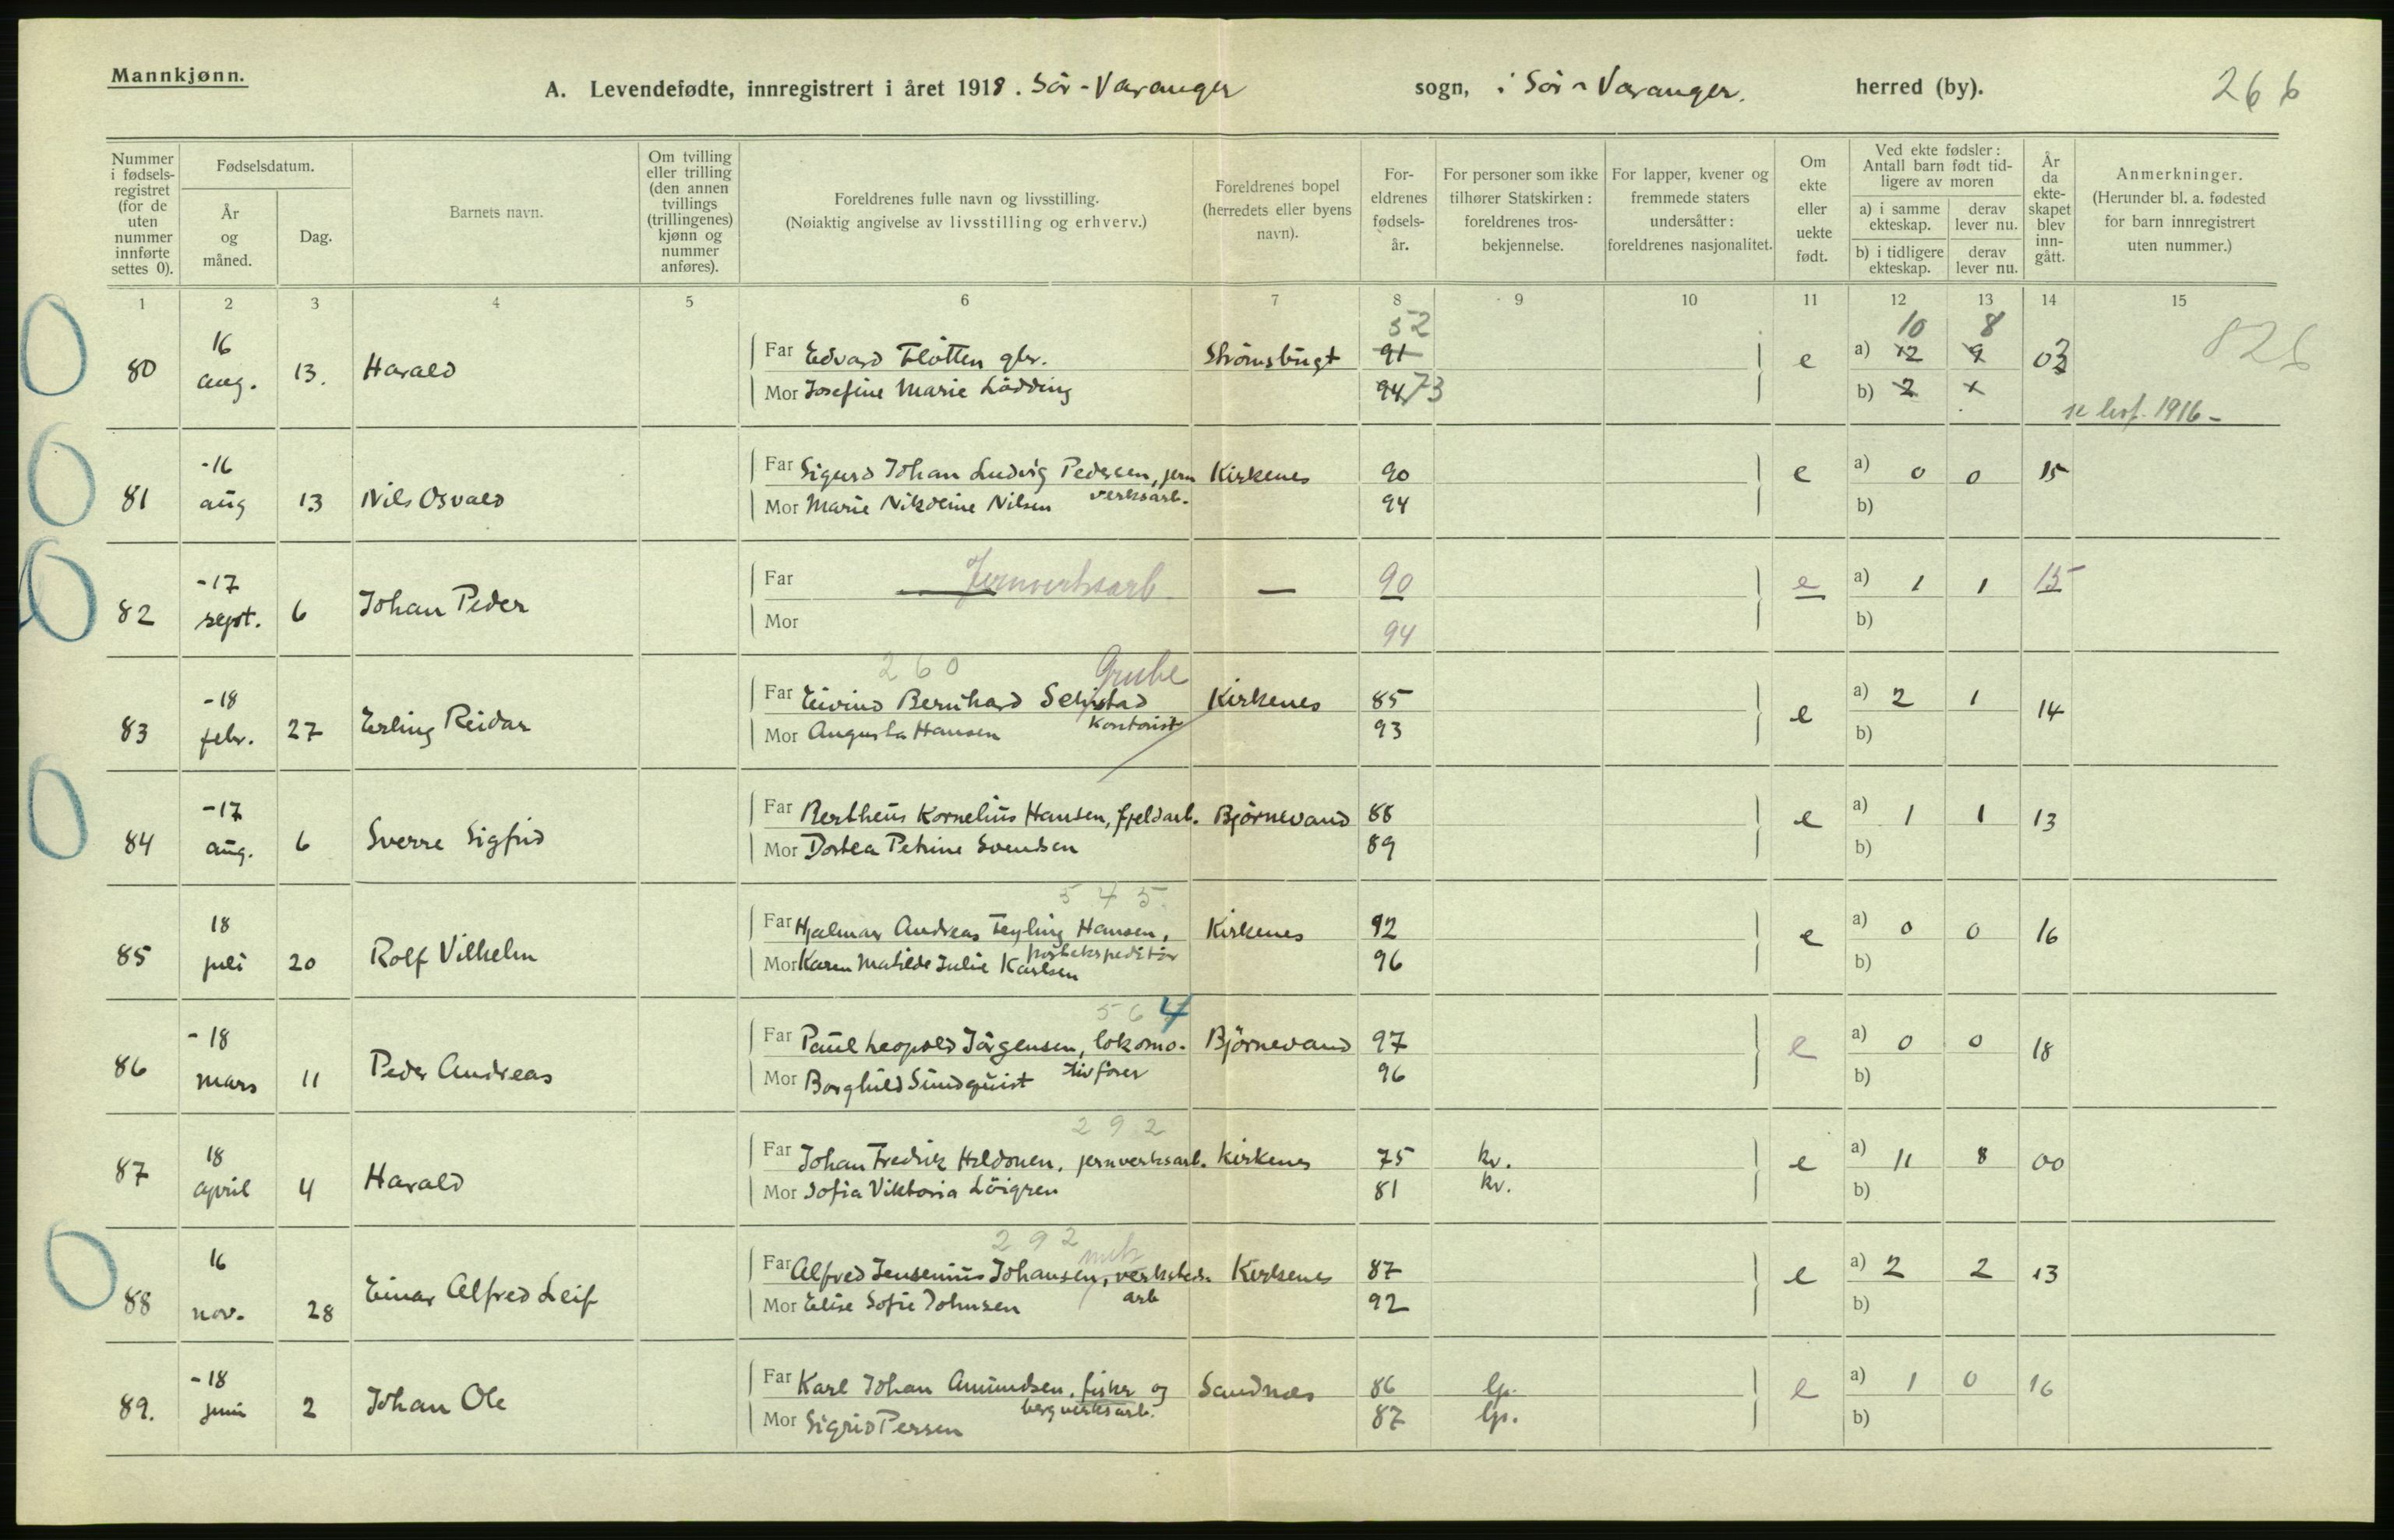 Mannkjønn.
A. Levendefødte, innregistrert i året 1918. Sör-Varanger sogn, i Sör-Varanger. herred (by).
266
Nummer i fødsels-registret (for de uten nummer innførte settes 0).
Fødselsdatum.
År og måned.
Dag.
Barnets navn.
Om tvilling eller trilling (den annen tvillings (trillingenes) kjønn og nummer anføres).
Foreldrenes fulle navn og livsstilling.
(Nøiaktig angivelse av livsstilling og erhverv.)
Foreldrenes bopel (herredets eller byens navn).
For-eldrenes fødsels-år.
For personer som ikke tilhører Statskirken: foreldrenes tros-bekjennelse.
For lapper, kvener og fremmede staters undersåtter: foreldrenes nasjonalitet.
Om ekte eller uekte født.
Ved ekte fødsler: Antall barn født tid-ligere av moren
a) i samme ekteskap.
derav lever nu.
b) i tidligere ekteskap.
derav lever nu.
År da ekte-skapet blev inn-gått.
Anmerkninger.
(Herunder bl. a. fødested for barn innregistrert uten nummer.)
1 2 3 4 5 6 7 8 9 10 11 12 13 14 15
52 10 8
80 16 aug. 13. Harald Far Edvard Flötten gbr. Strömsbugt 91 e a) 12 9 03
Mor Josefine Marie Lödding 94 73 b) 2 x
1916-
81 -16 aug 13 Nils Osvald Far Sigurd Johan Ludvig Pedersen, jern Kirkenes 90 e a) 0 0 15
verksarb.
Mor Marie Nikoline Nilsen 94 b)
82 -17 sept. 6 Johan Peder Far — Jernverksarb — 90 e a) 1 1 15
Mor 94 b)
260 Grube
83 -18 febr. 27 Erling Reidar Far Eivind Bernhard Kirkenes 85 e a) 2 1 14
kontorist
Mor Augusta Hansen 93 b)
84 -17 aug. 6 Sverre Sigfrid Far Bertheus Kornelius Hansen, fjeldarb. Björnevand 88 e a) 1 1 13
Mor Dortea Petrine Svendsen 89 b)
545
85 18 juli 20 Rolf Vilhelm Far Hjalmar Andreas Teyling Hansen, Kirkenes 92 e a) 0 0 16
postekspeditör
Mor Karen Matilde Julie Karlsen 96 b)
564
86 -18 mars 11 Peder Andreas Far Paul Leopold Jörgensen, lokomo- Björnevand 97 e a) 0 0 18
tivförer
Mor Borghild Sundquist 96 b)
292
87 18 april 4 Harald Far Johan Fredrik Heldonen, jernverksarb. Kirkenes 75 kv. e a) 11 8 00
Mor Sofia Viktoria Löigren 81 kv. b)
292
88 16 nov. 28 Einar Alfred Leif Far Alfred Jensenius Johansen, verksteds- Kirkenes 87 e a) 2 2 13
arb
Mor Elise Sofie Johnsen 92 b)
89. -18 juni 2 Johan Ole Far Karl Johan Amundsen, fisker og Sandnæs 86 lp. e a) 1 0 16
bergverksarb.
Mor Sigrid Persen 87 lp. b)